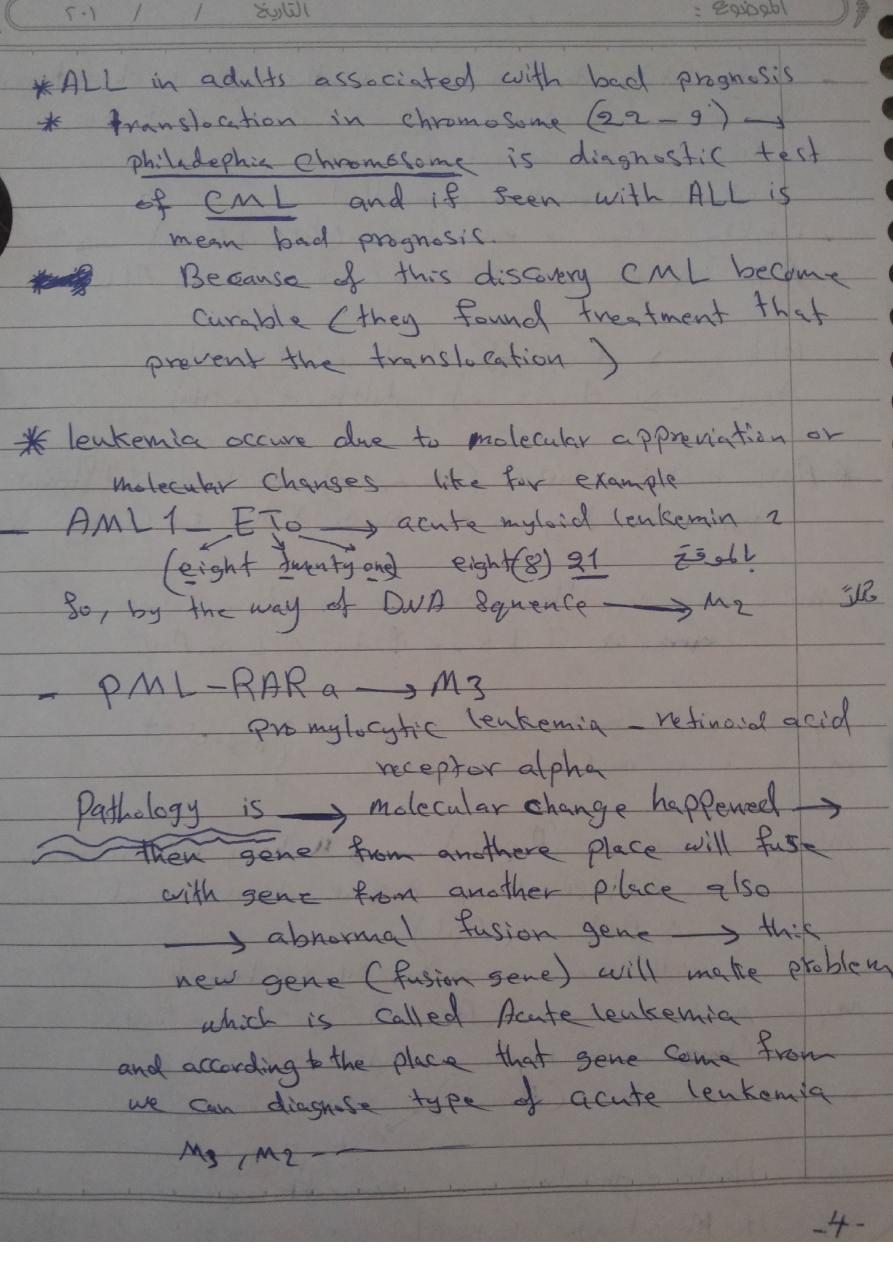 الموضوع : التاريخ / / ٢٠١
* ALL in adults associated with bad prognosis
* translocation in chromosome (22 - 9) →
philadephia chromosome is diagnostic test
of CML and if seen with ALL is
mean bad prognosis.
Because of this discovery CML become
curable (they found treatment that
prevent the translocation)
* leukemia occure due to molecular appreviation or
molecular changes like for example
- AML1 - ETO → acute myloid leukemia 2
(eight twenty one) eight(8) 21
So, by the way of DNA Squence → M2
- PML-RAR a → M3
promylocytic leukemia - retinoid acid
receptor alpha
Pathology is → molecular change happened →
then gene from anothere place will fuse
with gene from another place also
→ abnormal fusion gene → this
new gene (fusion gene) will make problem
which is called Acute leukemia
and according to the place that gene come from
we can diagnose type of acute leukemia
M3, M2 -
-4-